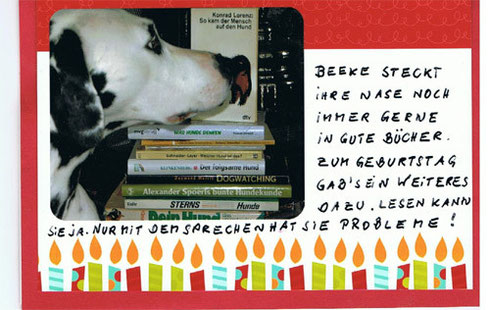 Konrad Lorenz:
So kam der Mensch
auf den Hund
dtv
WAS HUNDE DENKEN
Der folgsame Hund
DOGWATCHING
Alexander Spoerls bunte Hundekunde
STERNS Hunde
Dein Hund
BEEKE STECKT
IHRE NASE NOCH
IMMER GERNE
IN GUTE BÜCHER.
ZUM GEBURTSTAG
GAB'S EIN WEITERES
DAZU. LESEN KANN
SIE JA. NUR MIT DEM SPRECHEN HAT SIE PROBLEME!